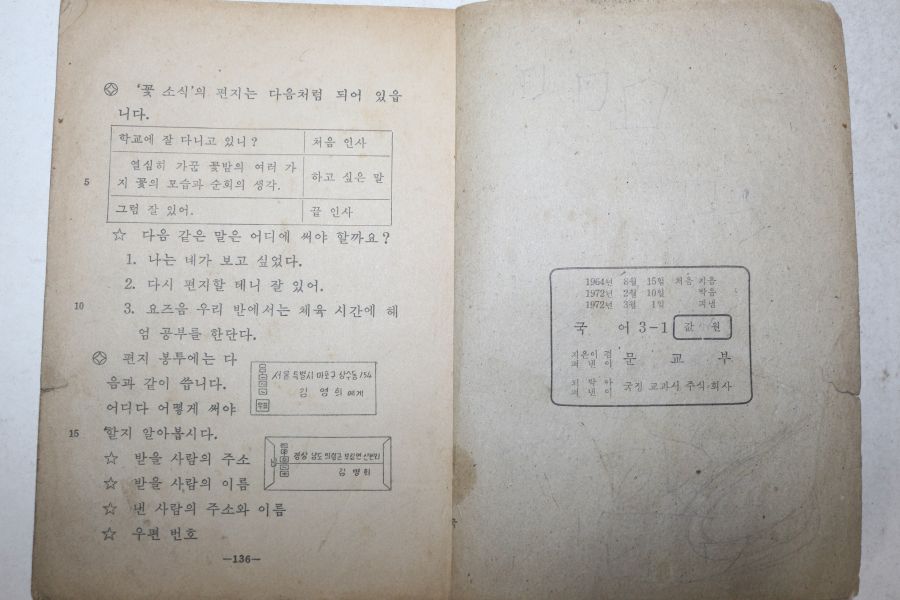 '꽃 소식'의 편지는 다음처럼 되어 있읍
니다.
학교에 잘 다니고 있니? 처음 인사
열심히 가꾼 꽃밭의 여러 가
5 지 꽃의 모습과 순회의 생각. 하고 싶은 말
그럼 잘 있어. 끝 인사
☆ 다음 같은 말은 어디에 써야 할까요?
1. 나는 네가 보고 싶었다.
2. 다시 편지할 테니 잘 있어.
10 3. 요즈음 우리 반에서는 체육 시간에 헤
엄 공부를 한단다.
편지 봉투에는 다
음과 같이 씁니다.
어디다 어떻게 써야
15 할지 알아봅시다.
☆ 받을 사람의 주소
☆ 받을 사람의 이름
☆ 낸 사람의 주소와 이름
☆ 우편 번호
서울 특별시 마포구 상수동 154
김 영 희 에게
경상 남도 의령군
김 명 희
—136—
1964년 8월 15일 처음 지음
1972년 2월 10일 박음
1972년 3월 1일 펴냄
국 어 3-1 값 원
지은이 겸
펴낸이 문 교 부
펴낸이 국정 교과서 주식 회사